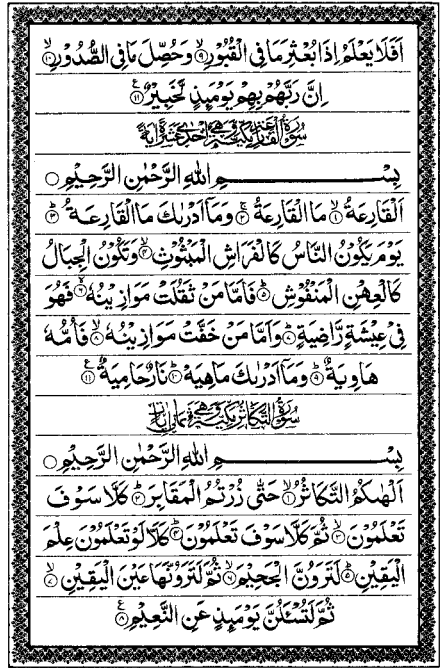 اَفَلَا يَعْلَمُ اِذَا بُعْثِرَ مَا فِي الْقُبُوْرِ ۙ﴿۹﴾ وَحُصِّلَ مَا فِي الصُّدُوْرِ ۙ﴿۱۰﴾
اِنَّ رَبَّهُمْ بِهِمْ يَوْمَىِٕذٍ لَّخَبِيْرٌ ﴿۱۱﴾ ع
سُوْرَةُ الْقَارِعَةِ مَكِّيَّةٌ وَّهِيَ اِحْدٰى عَشْرَةَ اٰيَةً
بِسْمِ اللّٰهِ الرَّحْمٰنِ الرَّحِيْمِ ○
اَلْقَارِعَةُ ۙ﴿۱﴾ مَا الْقَارِعَةُ ۚ﴿۲﴾ وَمَاۤ اَدْرٰىكَ مَا الْقَارِعَةُ ؕ﴿۳﴾
يَوْمَ يَكُوْنُ النَّاسُ كَالْفَرَاشِ الْمَبْثُوْثِ ۙ﴿۴﴾ وَتَكُوْنُ الْجِبَالُ
كَالْعِهْنِ الْمَنْفُوْشِ ؕ﴿۵﴾ فَاَمَّا مَنْ ثَقُلَتْ مَوَازِيْنُهٗ ۙ﴿۶﴾ فَهُوَ
فِيْ عِيْشَةٍ رَّاضِيَةٍ ؕ﴿۷﴾ وَاَمَّا مَنْ خَفَّتْ مَوَازِيْنُهٗ ۙ﴿۸﴾ فَاُمُّهٗ
هَاوِيَةٌ ؕ﴿۹﴾ وَمَاۤ اَدْرٰىكَ مَاهِيَهْ ؕ﴿۱۰﴾ نَارٌ حَامِيَةٌ ﴿۱۱﴾ ع
سُوْرَةُ التَّكَاثُرِ مَكِّيَّةٌ وَّهِيَ ثَمَانِيْ اٰيَاتٍ
بِسْمِ اللّٰهِ الرَّحْمٰنِ الرَّحِيْمِ ○
اَلْهٰىكُمُ التَّكَاثُرُ ۙ﴿۱﴾ حَتّٰى زُرْتُمُ الْمَقَابِرَ ؕ﴿۲﴾ كَلَّا سَوْفَ
تَعْلَمُوْنَ ۙ﴿۳﴾ ثُمَّ كَلَّا سَوْفَ تَعْلَمُوْنَ ؕ﴿۴﴾ كَلَّا لَوْ تَعْلَمُوْنَ عِلْمَ
الْيَقِيْنِ ؕ﴿۵﴾ لَتَرَوُنَّ الْجَحِيْمَ ۙ﴿۶﴾ ثُمَّ لَتَرَوُنَّهَا عَيْنَ الْيَقِيْنِ ۙ﴿۷﴾
ثُمَّ لَتُسْئَلُنَّ يَوْمَىِٕذٍ عَنِ النَّعِيْمِ ﴿۸﴾ ع